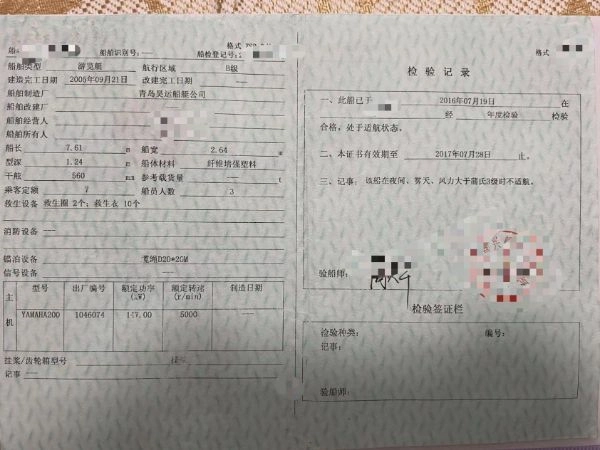 船舶识别号: ---
格式
船检登记号:
船舶类型 游览艇 航行区域 B级
建造完工日期 2005年09月21日 改建完工日期 ---
船舶制造厂 青岛昊运船艇公司
船舶改建厂
船舶经营人
船舶所有人
船长 7.61 m 船宽 2.64
型深 1.24 m 船体材料 纤维增强塑料
干舷 560 mm 参考载货量 ---
乘客定额 7 船员人数 3
救生设备 救生圈 2个; 救生衣 10个
消防设备 ---
锚泊设备 缆绳D20*20M
信号设备 ---
主机
型号 出厂编号 额定功率(kW) 额定转速(r/min) 制造日期
YAMAHA200 1046074 147.00 5000
挂桨/齿轮箱型号
记事 ---
格式
检验记录
一、此船已于 2016年07月19日 在
经 年度检验 检验
合格, 处于适航状态。
二、本证书有效期至 2017年07月28日 止。
三、记事: 该船在夜间、雾天、风力大于蒲氏3级时不适航。
验船师:
检验签证栏
检验种类: 编号:
记事:
验船师: